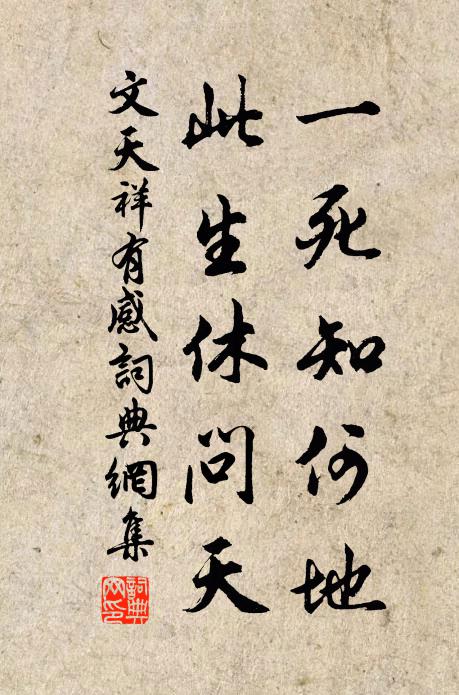 一死知何地
此生休問天
文天祥有感詞典網集
詞典網印